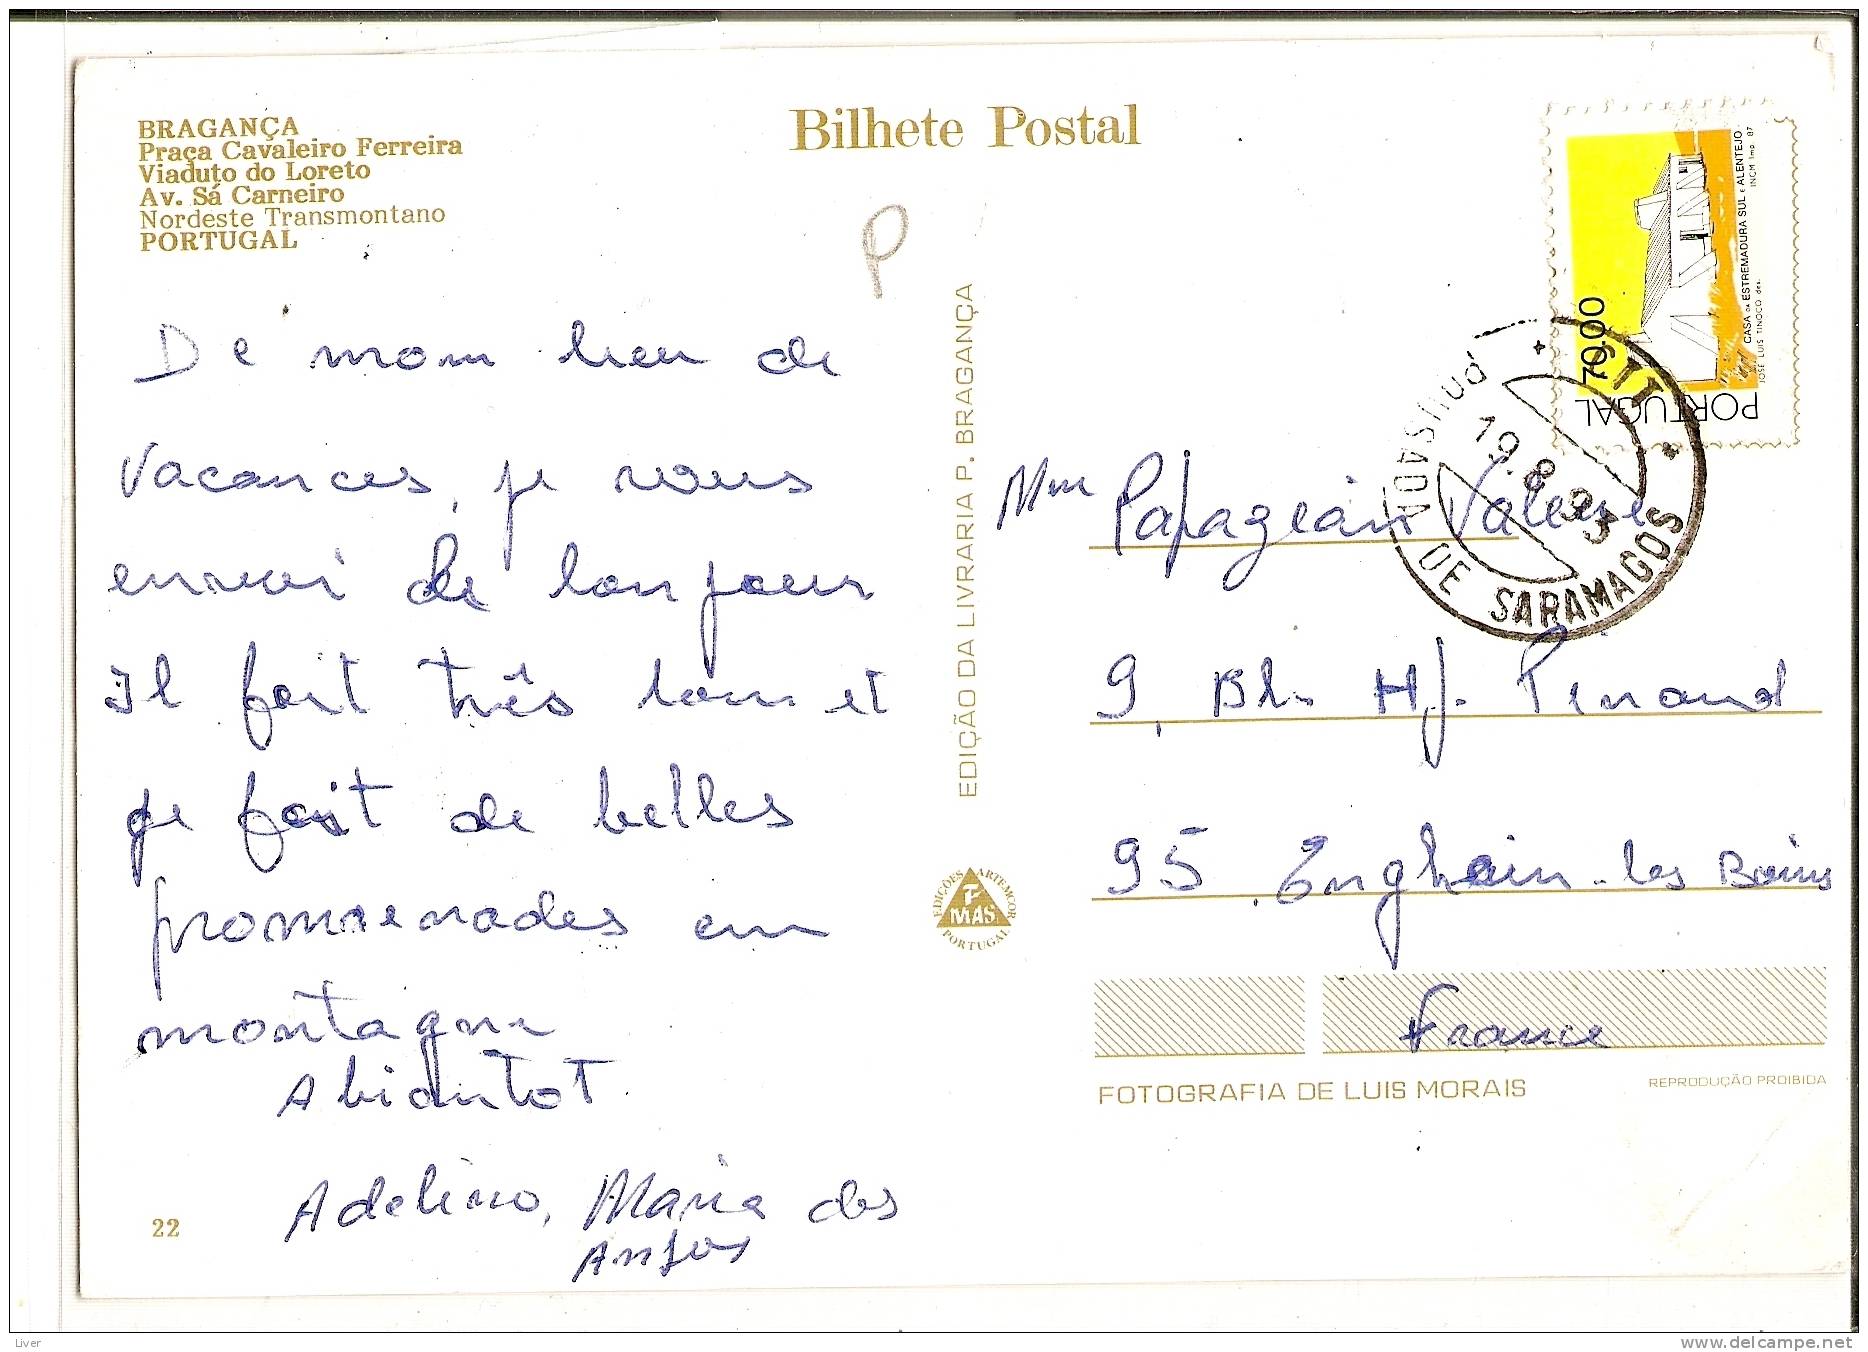 BRAGANÇA
Praça Cavaleiro Ferreira
Viaduto do Loreto
Av. Sá Carneiro
Nordeste Transmontano
PORTUGAL
Bilhete Postal
P
De mom lieu de
vacances, je vous
envoi de bonjour
Il fait três bom et
je fait de belles
promenades em
montagne
A biantot
Adelino, Maria dos
Anjos
22
EDIÇÃO DA LIVRARIA P. BRAGANÇA
EDIÇÕES ARTEMCOR
F
MAS.
PORTUGAL
PORTUGAL
70.00
CASA DA ESTREMADURA SUL E ALENTEJO
JOSÉ LUIS TINOCO des. INCM Imp. 87
19.8.93
DE SARAMAGOS
Mme Papagéain Valerie
9, Bl. H J. Pinaud
95 Enghain-les Bains
France
FOTOGRAFIA DE LUIS MORAIS
REPRODUÇÃO PROIBIDA
Liver
www.delcampe.net